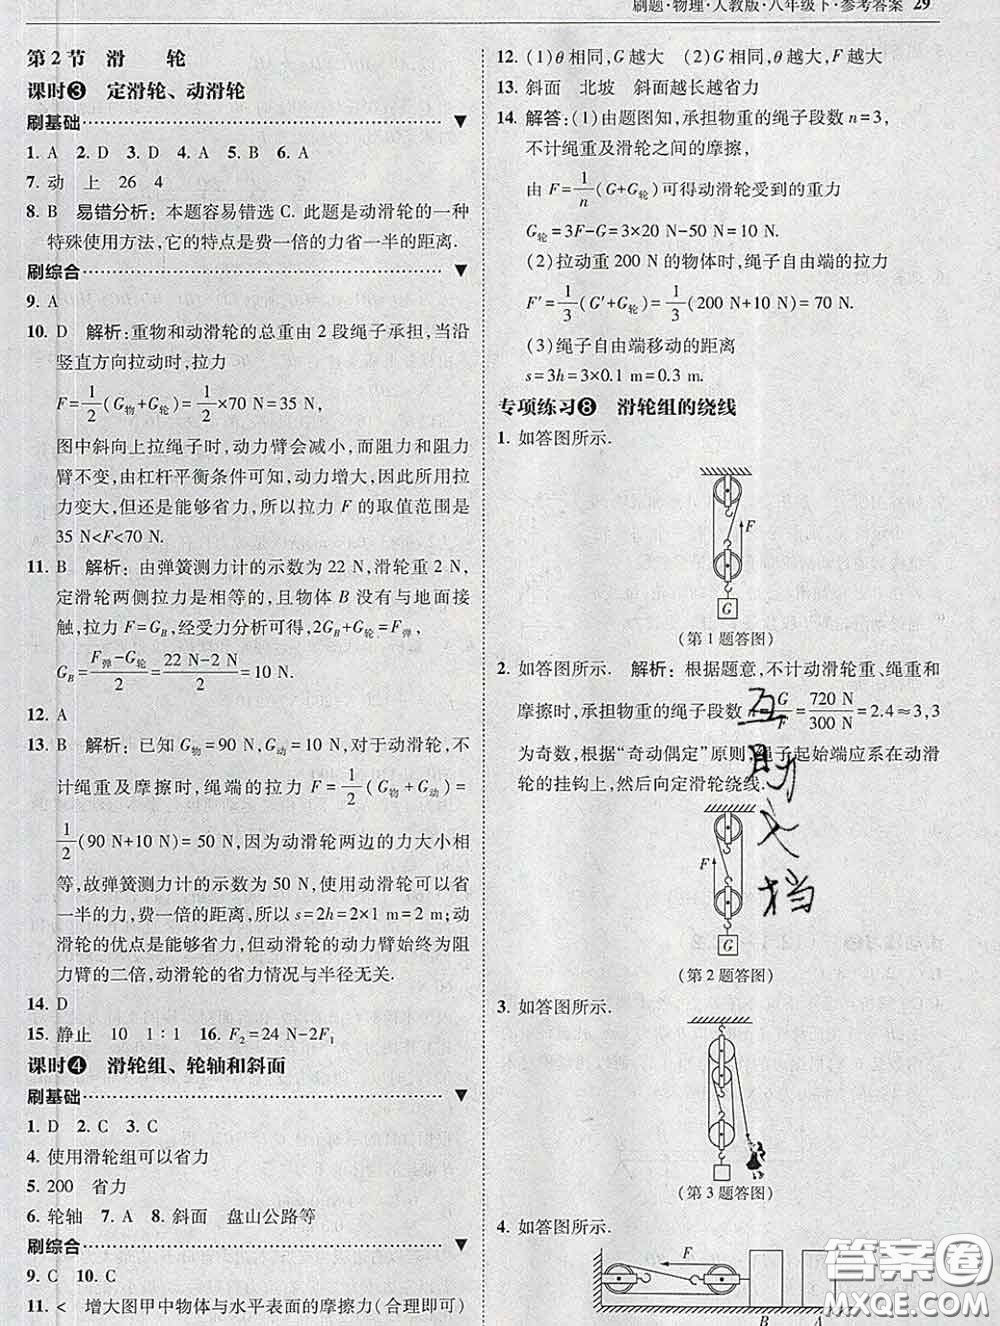 刷题·物理·人教版·八年级下·参考答案 29
第2节 滑 轮
课时❸ 定滑轮、动滑轮
刷基础
1. A 2. D 3. D 4. A 5. B 6. A
7. 动 上 26 4
8. B 易错分析: 本题容易错选 C. 此题是动滑轮的一种
特殊使用方法,它的特点是费一倍的力省一半的距离.
刷综合
9. A
10. D 解析: 重物和动滑轮的总重由 2 段绳子承担,当沿
竖直方向拉动时,拉力
F=1/2(G物+G轮)=1/2×70 N=35 N,
图中斜向上拉绳子时,动力臂会减小,而阻力和阻力
臂不变,由杠杆平衡条件可知,动力增大,因此所用拉
力变大,但还是能够省力,所以拉力 F 的取值范围是
35 N<F<70 N.
11. B 解析: 由弹簧测力计的示数为 22 N,滑轮重 2 N,
定滑轮两侧拉力是相等的,且物体 B 没有与地面接
触,拉力 F=G_B,经受力分析可得,2G_B+G轮=F弹,
G_B=(F弹-G轮)/2=(22 N-2 N)/2=10 N.
12. A
13. B 解析: 已知 G物=90 N,G动=10 N,对于动滑轮,不
计绳重及摩擦时,绳端的拉力 F=1/2(G物+G动)=
1/2(90 N+10 N)=50 N,因为动滑轮两边的力大小相
等,故弹簧测力计的示数为 50 N,使用动滑轮可以省
一半的力,费一倍的距离,所以 s=2h=2×1 m=2 m;动
滑轮的优点是能够省力,但动滑轮的动力臂始终为阻
力臂的二倍,动滑轮的省力情况与半径无关.
14. D
15. 静止 10 1:1 16. F₂=24 N-2F₁
课时❹ 滑轮组、轮轴和斜面
刷基础
1. D 2. C 3. C
4. 使用滑轮组可以省力
5. 200 省力
6. 轮轴 7. A 8. 斜面 盘山公路等
刷综合
9. C 10. C
11. < 增大图甲中物体与水平表面的摩擦力(合理即可)
12. (1)θ相同,G越大 (2)G相同,θ越大
13. 斜面 北坡 斜面越长越省力
14. 解答: (1)由题图知,承担物重的绳子段数 n=3,
不计绳重及滑轮之间的摩擦,
由 F=1/n(G+G轮)可得动滑轮受到的重力
G轮=3F-G=3×20 N-50 N=10 N.
(2)拉动重 200 N 的物体时,绳子自由端的拉力
F′=1/3(G′+G轮)=1/3(200 N+10 N)=70 N.
(3)绳子自由端移动的距离
s=3h=3×0.1 m=0.3 m.
专项练习❽ 滑轮组的绕线
1. 如答图所示.
F
G
(第1题答图)
2. 如答图所示. 解析: 根据题意,不计动滑轮重、绳重和
摩擦时,承担物重的绳子段数 n=G/F=720 N/300 N=2.4≈3,3
为奇数,根据“奇动偶定”原则,绳子起始端应系在动滑
轮的挂钩上,然后向定滑轮绕线.
F
G
(第2题答图)
3. 如答图所示.
(第3题答图)
4. 如答图所示.
F
B A
答案圈
MXQE.COM